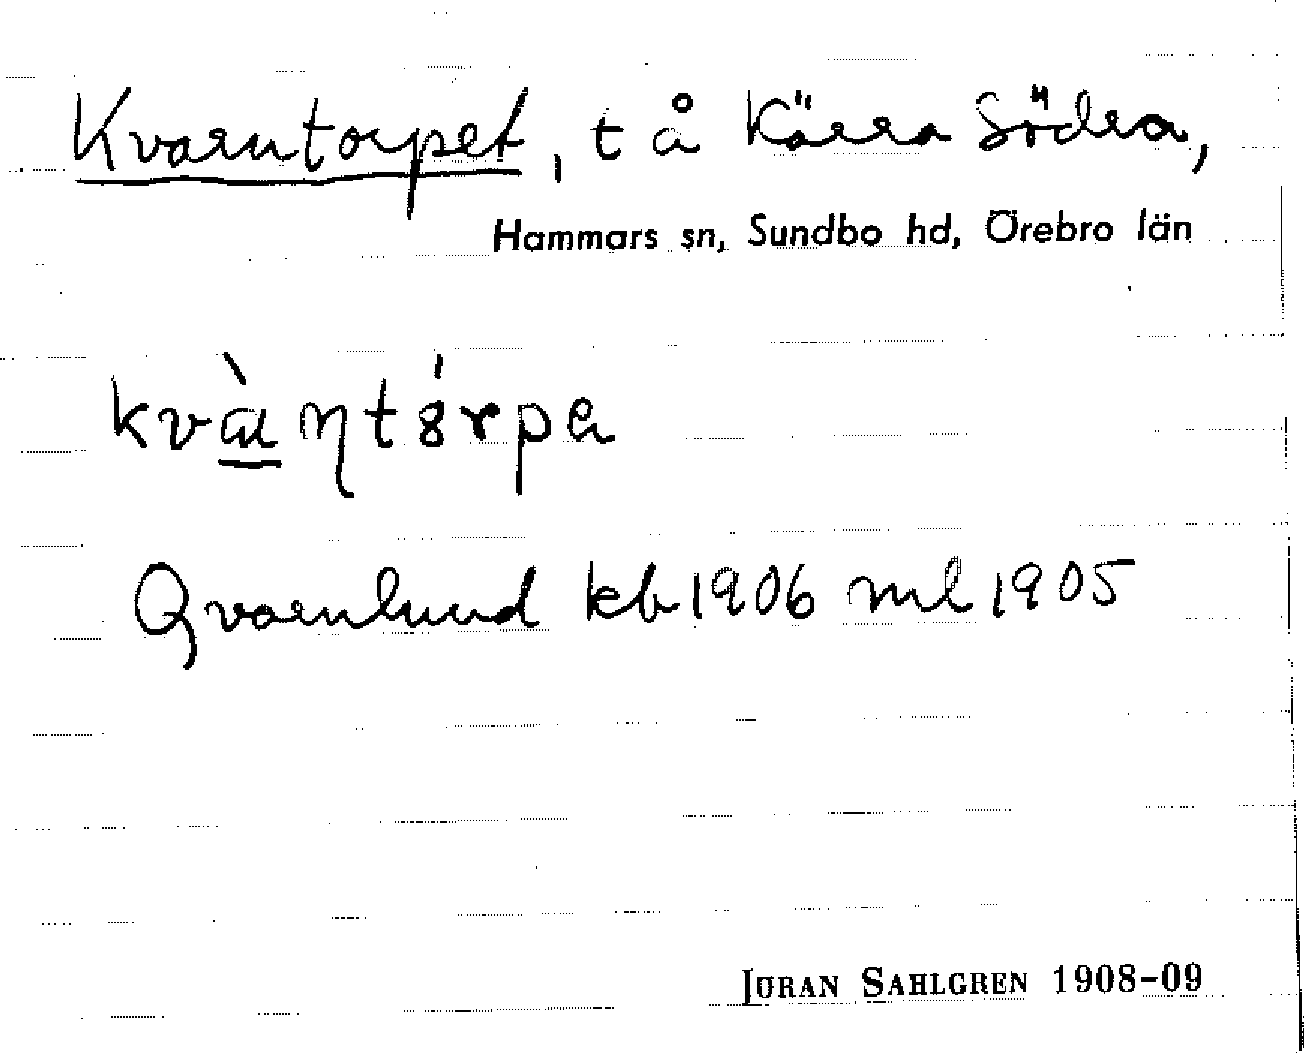 Kvarntorpet, t å Kärra Södra,
Hammars sn, Sundbo hd, Örebro län
kvàɳtŏ́rpa
Qvarnlund kb 1906 ml 1905
JÖRAN SAHLGREN 1908-09